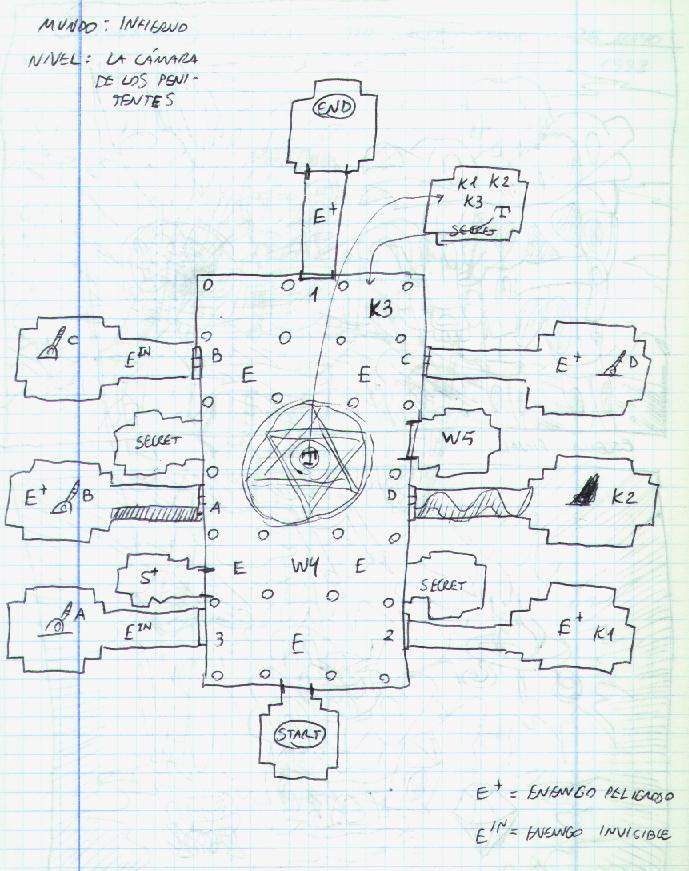 MUNDO: INFIERNO
NIVEL: LA CÁMARA
DE LOS PENI-
TENTES
END
E+
K1 K2
K3
T
SECRET
1
K3
C
E^IN
B
E
E
C
E+
D
SECRET
W5
T
E+
B
A
D
K2
S+
E
W4
E
SECRET
A
E^IN
3
E
2
E+
K1
START
E+ = ENEMIGO PELIGROSO
E^IN = ENEMIGO INVISIBLE